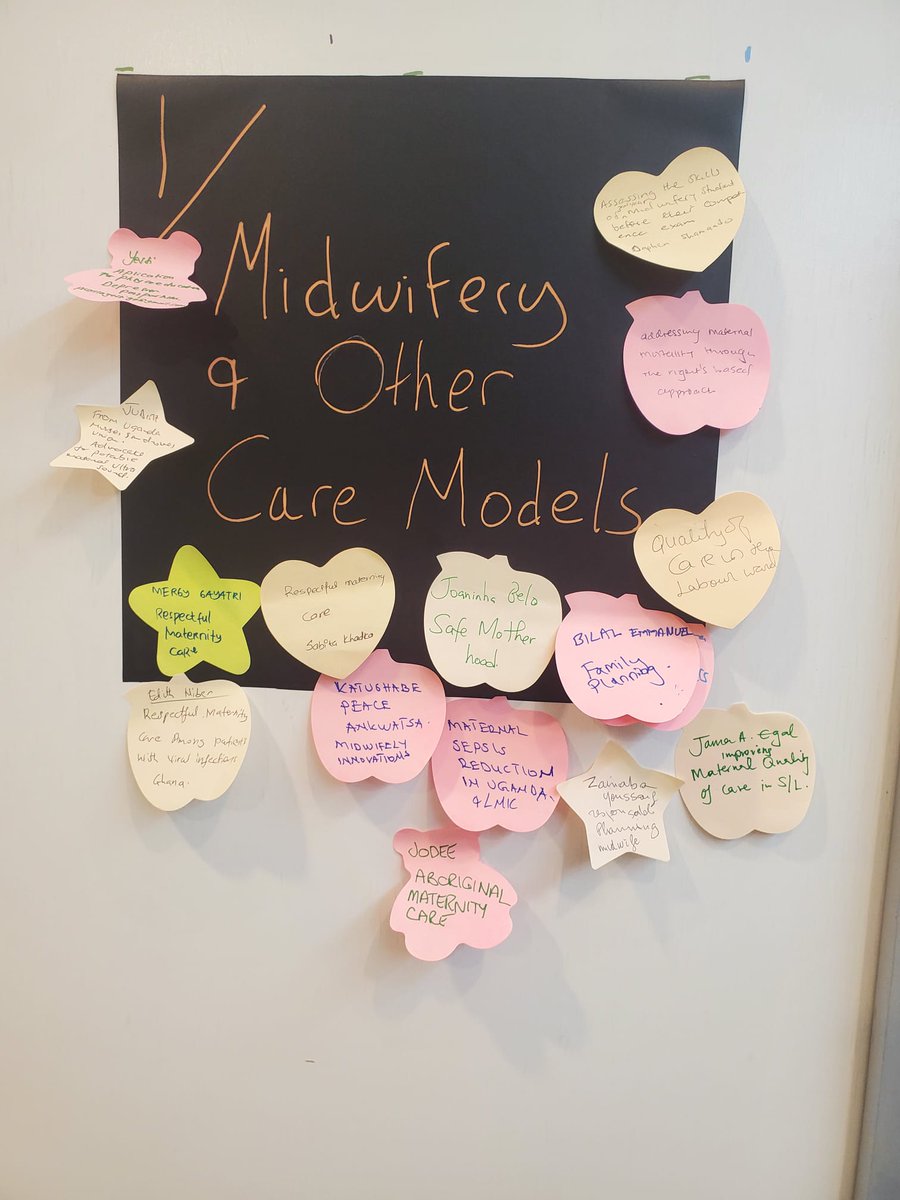 1/
Midwifery
& Other
Care Models
Assessing the skills
of a Midwifery student
before their compet
ence exam
addressing maternal
mortality through
the right's based
approach
Yesti
Aplication
Depression
postpartum
JUDITH
From Uganda
Advocate
for portable
maternal ultra
sound.
Quality of
Care in the
Labour ward
MERGY GAYATRI
Respectful
Maternity
Care
Respectful maternity
Care
Sabita Khadka
Joaninha Belo
Safe Mother
hood
BILAL EMMANUEL
Family
Planning.
Edith Niber
Respectful Maternity
Care Among patients
with viral infections
Ghana.
KATUSHABE
PEACE
ANKWATSA.
MIDWIFELY
INNOVATIONS
MATERNAL
SEPSIS
REDUCTION
IN UGANDA
& LMIC
Zainaba
Youssouf
Planning
midwife
Jama A. Egal
improving
Maternal Quality
of care in S/L.
JODEE
ABORIGINAL
MATERNITY
CARE